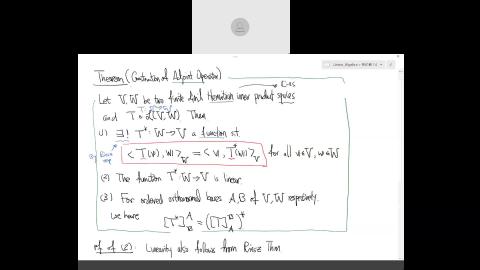 Theorem (Construction of Adjoint Operator)
Let V, W be two finite dim'l Hermitian inner product spaces
and T ∈ L(V, W). Then
(1) ∃! T* : W → V a function s.t.
By Riesz rep
< T(v), w >_W = < v, T*(w) >_V for all v∈V, w∈W
(2) The function T* : W → V is linear.
(3) For ordered orthonormal bases A, B of V, W respectively,
we have [T*]_B^A = ([T]_A^B)*
pf of (2): Linearity also follows from Riesz Thm